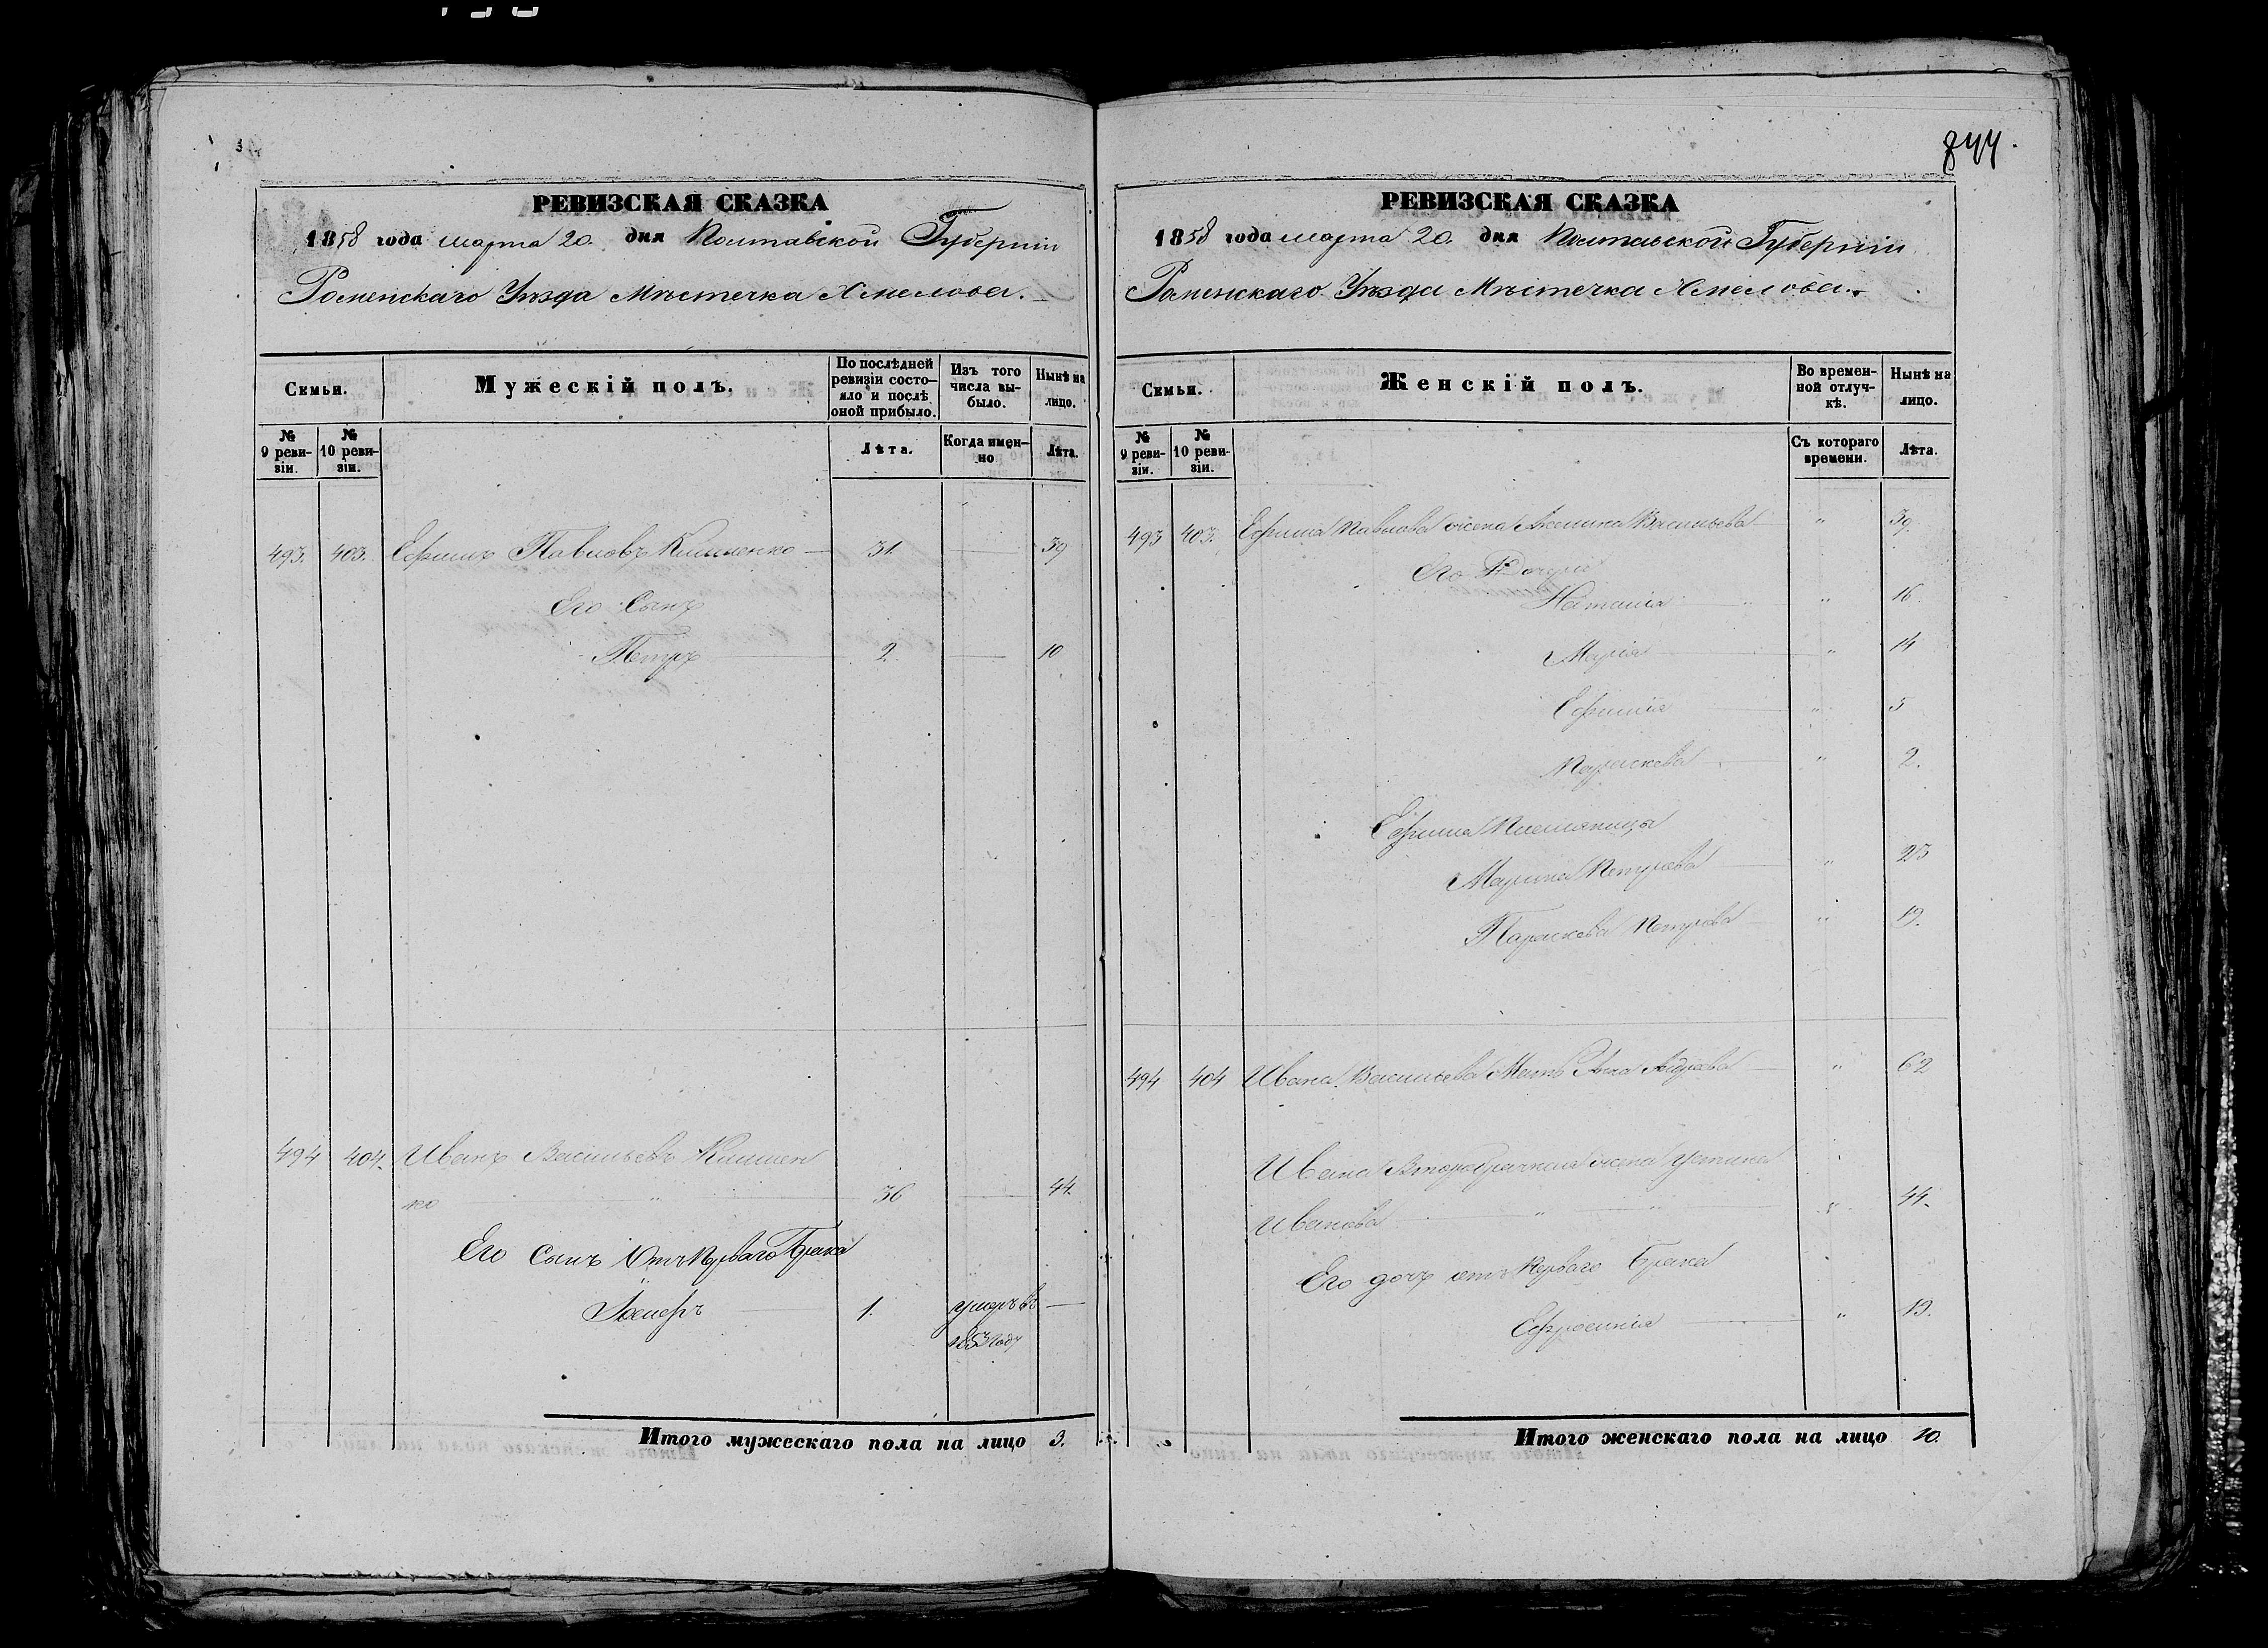 844.
РЕВИЗСКАЯ СКАЗКА
1858 года марта 20. дня Полтавской Губерніи
Роменскаго Уѣзда Мѣстечка Хмелова.
Семьи.
Мужескій полъ.
По послѣдней ревизіи состояло и послѣ оной прибыло.
Изъ того числа выбыло.
Нынѣ на лицо.
№ 9 ревизіи.
№ 10 ревизіи.
Лѣта.
Когда именно
Лѣта.
493. 403. Ефимъ Павловъ Клименко — 31. — 39
Его Сынъ
Петръ — 2. — 10
494 404. Иванъ Васильевъ Климен
ко " 36 — 44.
Его Сынъ Отъ Перваго Брака
1. умеръ въ —
185 году
Итого мужескаго пола на лицо 3.
РЕВИЗСКАЯ СКАЗКА
1858 года марта 20. дня Полтавской Губерніи
Роменскаго Уѣзда Мѣстечка Хмелова.
Семьи.
Женскій полъ.
Во временной отлучкѣ.
Нынѣ на лицо.
№ 9 ревизіи.
№ 10 ревизіи.
Съ котораго времени.
Лѣта.
493 403. Ефима Павлова жена Васильева " 39.
Его Дочери
Наталія " 16.
Марія " 14
Ефимія " 5
Параскева " 2.
Ефима Племяницы
Марина Петрова " 23
Параскева Петрова " 19.
494 404 Ивана Васильева Мать Анна " 62
Ивана Второбрачная жена Устина
Иванова " " " 44.
Его дочь отъ Перваго Брака
Ефросинія " 19.
Итого женскаго пола на лицо 10.